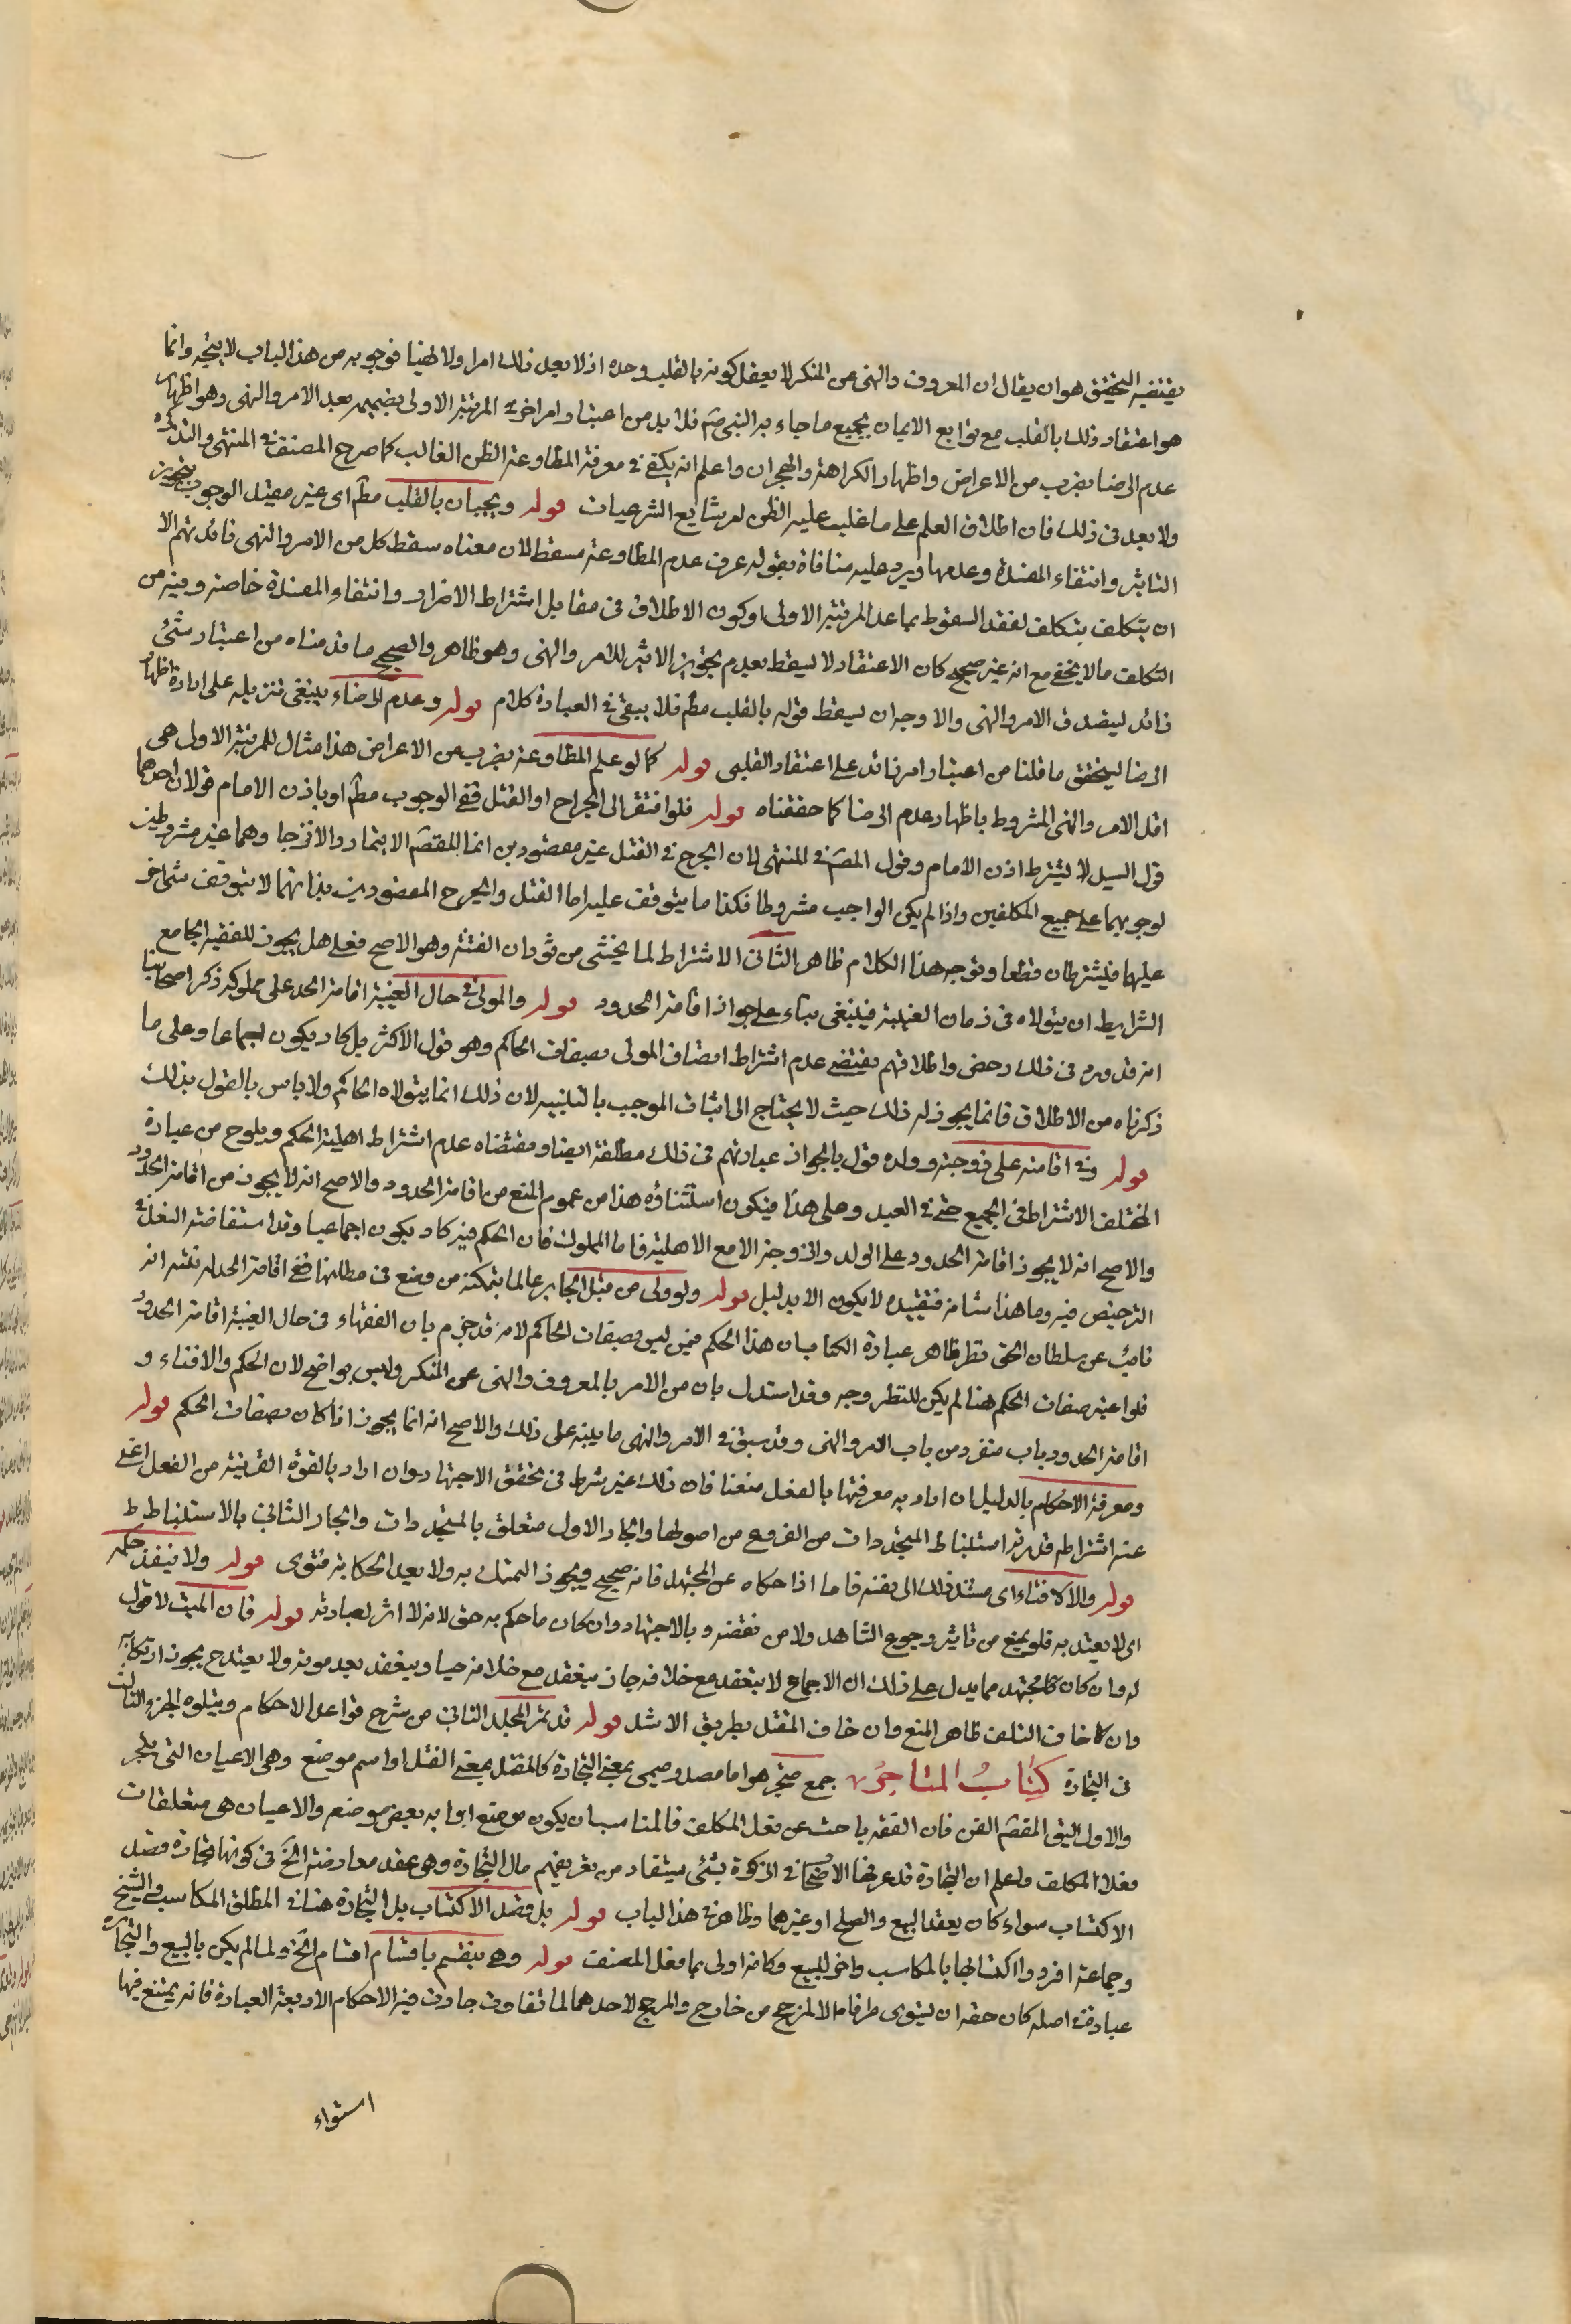 يقتضيه التحقيق هو ان يقال ان المعروف والنهى عن المنكر لا يعقل كونه بالقلب وحده اذ لا يعد ذلك امرا ولا نهيا فوجوبه من هذا الباب لا يتجه وانما
هو اعتقاد ذلك بالقلب مع توابع الايمان بجميع ما جاء به النبى صم فلا بد من اعتبار امر اخر فى المرتبة الاولى بضميمه يعد الامر والنهى وهو اظهار
عدم الرضا بضرب من الاعراض واظهار الكراهة والهجران واعلم انه يكفى فى معرفة المطاوعة الظن الغالب كما صرح المصنف فى المنتهى والتذكرة
ولا بعد فى ذلك فان اطلاق العلم على ما غلب عليه الظن امر شايع الشرعيات قوله ويجبان بالقلب مطم اى غير مقيد الوجوب بتجويز
التاثير وانتفاء المفسدة وعدمها ويرد عليه منافاة بقوله عرف عدم المطاوعة مسقط لان معناه سقط كل من الامر والنهى فائدتهم الا
ان يتكلف بتكلف لفقد السقوط بما عدا المرتبة الاولى او كون الاطلاق فى مقابل اشتراط الاضرار وانتفاء المفسدة خاصة وفيه من
التكلف ما لا يخفى مع انه غير صحيح كان الاعتقاد لا يسقط بعدم تجويز الاثير للامر والنهى وهو ظاهر والصحيح ما قدمناه من اعتبار شئ
زائد ليصدق الامر والنهى والا وجه ان يسقط قوله بالقلب مطم فلا يبقى فى العبارة كلام قوله وعدم الرضاء ينبغى تنزيله على ارادة اظهار
الرضا ليتحقق ما قلنا من اعتبار امر زائد على اعتقاد القلبى قوله كما لو علم المطاوعة بضرب من الاعراض هذا مثال للمرتبة الاولى هى
اقل الامر والنهى المشروط باظهار عدم الرضا كما حققناه قوله فلو افتقر الى الجراح او القتل ففى الوجوب مطم او باذن الامام قولان احدهما
قول السيد لا يشترط اذن الامام وقول المصم فى المنتهى لان الجرح فى القتل غير مقصودين انما المقصم الايتمار والانزجار وهما غير مشروطين
لوجوبهما على جميع المكلفين واذا لم يكن الواجب مشروطا فكذا ما يتوقف عليه اما القتل والجرح المقصودين بذاتهما لا يتوقف شئ اخر
عليها فيشترطان قطعا وتوجه هذا الكلام ظاهر الثانى الاشتراط لما يخشى من ثوران الفتنة وهو الاصح فعلى هل يجوز للفقيه الجامع
الشرايط ان يتولاه فى زمان الغيبة فينبغى بناء على جواز اقامة الحدود قوله والمولى فى حال الغيبة اقامة الحد على مملوكه ذكر اصحابنا
انه قد ورد فى ذلك رخص واطلاقهم يقتضى عدم اشتراط اتصاف المولى بصفات الحاكم وهو قول الاكثر بل كاد يكون اجماعا وعلى ما
ذكرناه من الاطلاق فانما يجوز له ذلك حيث لا يحتاج الى اثبات الموجب بالبينه لان ذلك انما يتولاه الحاكم ولا باس بالقول بذلك
قوله وفى اقامته على زوجته وولده قول بالجواز عبارتهم فى ذلك مطلقة ايضا ومقتضاه عدم اشتراط اهلية الحكم ويلوح من عبارة
المختلف الاشتراط فى الجميع حتى فى العبد وعلى هذا فيكون استثناؤه هذا من عموم المنع من اقامة الحدود والاصح انه لا يجوز من اقامة الحدود
والاصح انه لا يجوز اقامة الحدود على الولد والزوجة الا مع الاهلية فاما المملوك فان الحكم فيه كاد يكون اجماعيا وقد استفاضة النقل فى
الترخيص فيه وما هذا شانه فتقييده لا يكون الا بدليل قوله ولو ولى من قبل الجاير عالما بتمكنه من وضع فى مظانها ففى اقامة الحد له بنية انه
نائب عن سلطان الحق نظر ظاهر عبارة الكتاب ان هذا الحكم فيمن ليس بصفات الحاكم لانه قد جزم بان الفقهاء فى حال الغيبة اقامة الحدود
فلو اعتبر صفات الحكم هنا لم يكن للنظر وجه وقد استدل بان من الامر بالمعروف والنهى عن المنكر وليس بواضح لان الحكم والافتاء و
اقامة الحدود باب منفرد من باب الامر والنهى وقد سبق فى الامر والنهى ما ينبه على ذلك والاصح انه انما يجوز اذا كان بصفات الحكم قوله
ومعرفة الاحكام بالدليل ان اراد به معرفتها بالفعل منعنا فان ذلك غير شرط فى تحقق الاجتهاد وان اراد بالقوة القريبة من الفعل اغنى
عنه اشتراطه قدرته استنباط المتجددات من الفروع من اصولها والجار الاول متعلق بالمتجددات والجار الثانى بالاستنباط ط
قوله والا الافتاء اى مسند ذلك الى نفسه فاما اذا حكاه عن المجتهد فانه صحيح ويجوز التمسك به ولا يعد الحكاية فتوى قوله ولا ينفذ حكمه
اى لا يعتد به فلو يمنع من تاثير رجوع الشاهد ولا من نقضه وبالاجتهاد وان كان ما حكم به حق لانه لا اثر لعبارته قوله فان الميت لا قول
له وان كان كالمجتهد مما يدل على ذلك ان الاجماع لا ينعقد مع خلافه جاز ينعقد مع خلافه حيا وينعقد بعد موته ولا يعتد ح يجوز ارتكابه
وان كان خاف التلف ظاهر المنع وان خاف المقتل بطريق الاشد قوله قد تم المجلد الثانى من شرح قواعد الاحكام ويتلوه الجزء الثالث
فى التجارة كِتَابُ المتاجِر جمع متجر هو اما مصدر ميمى بمعنى التجارة كالمقتل بمعنى القتل او اسم موضع وهى الاعيان التى يتجر
والاول اليق المقصم الفن فان الفقه باحث عن فعل المكلف فالمناسب ان يكون موضع ابوابه بعض موضعه والاعيان هى متعلقات
فعل المكلف واعلم ان التجارة قد عرفها الاصحاب فى الزكوة بشئ يستفاد من تعريفهم مال التجارة وهى عقد معاوضة الخ فى كونها تجارة قصد
الاكتساب سواء كان بعقد البيع والصلح او غيرهما وظاهره فى هذا الباب قوله بل قصد الاكتساب بل التجارة هنا فى المطلق المكاسب والشيخ
وجماعة افردوا اكتسابها بالمكاسب واخر للبيع وكانه اولى مما فعل المصنف قوله وهى ينقسم باقسام اقسام الخ ولما لم يكن بالبيع والتجارة
عبادة فى اصله كان حقه ان يستوى طرفاه الا لمرجح من خارج والمرجح لاحدهما لما تفاوت جاوت فيه الاحكام الاربعة العبادة فانه يمتنع فيها
استواء